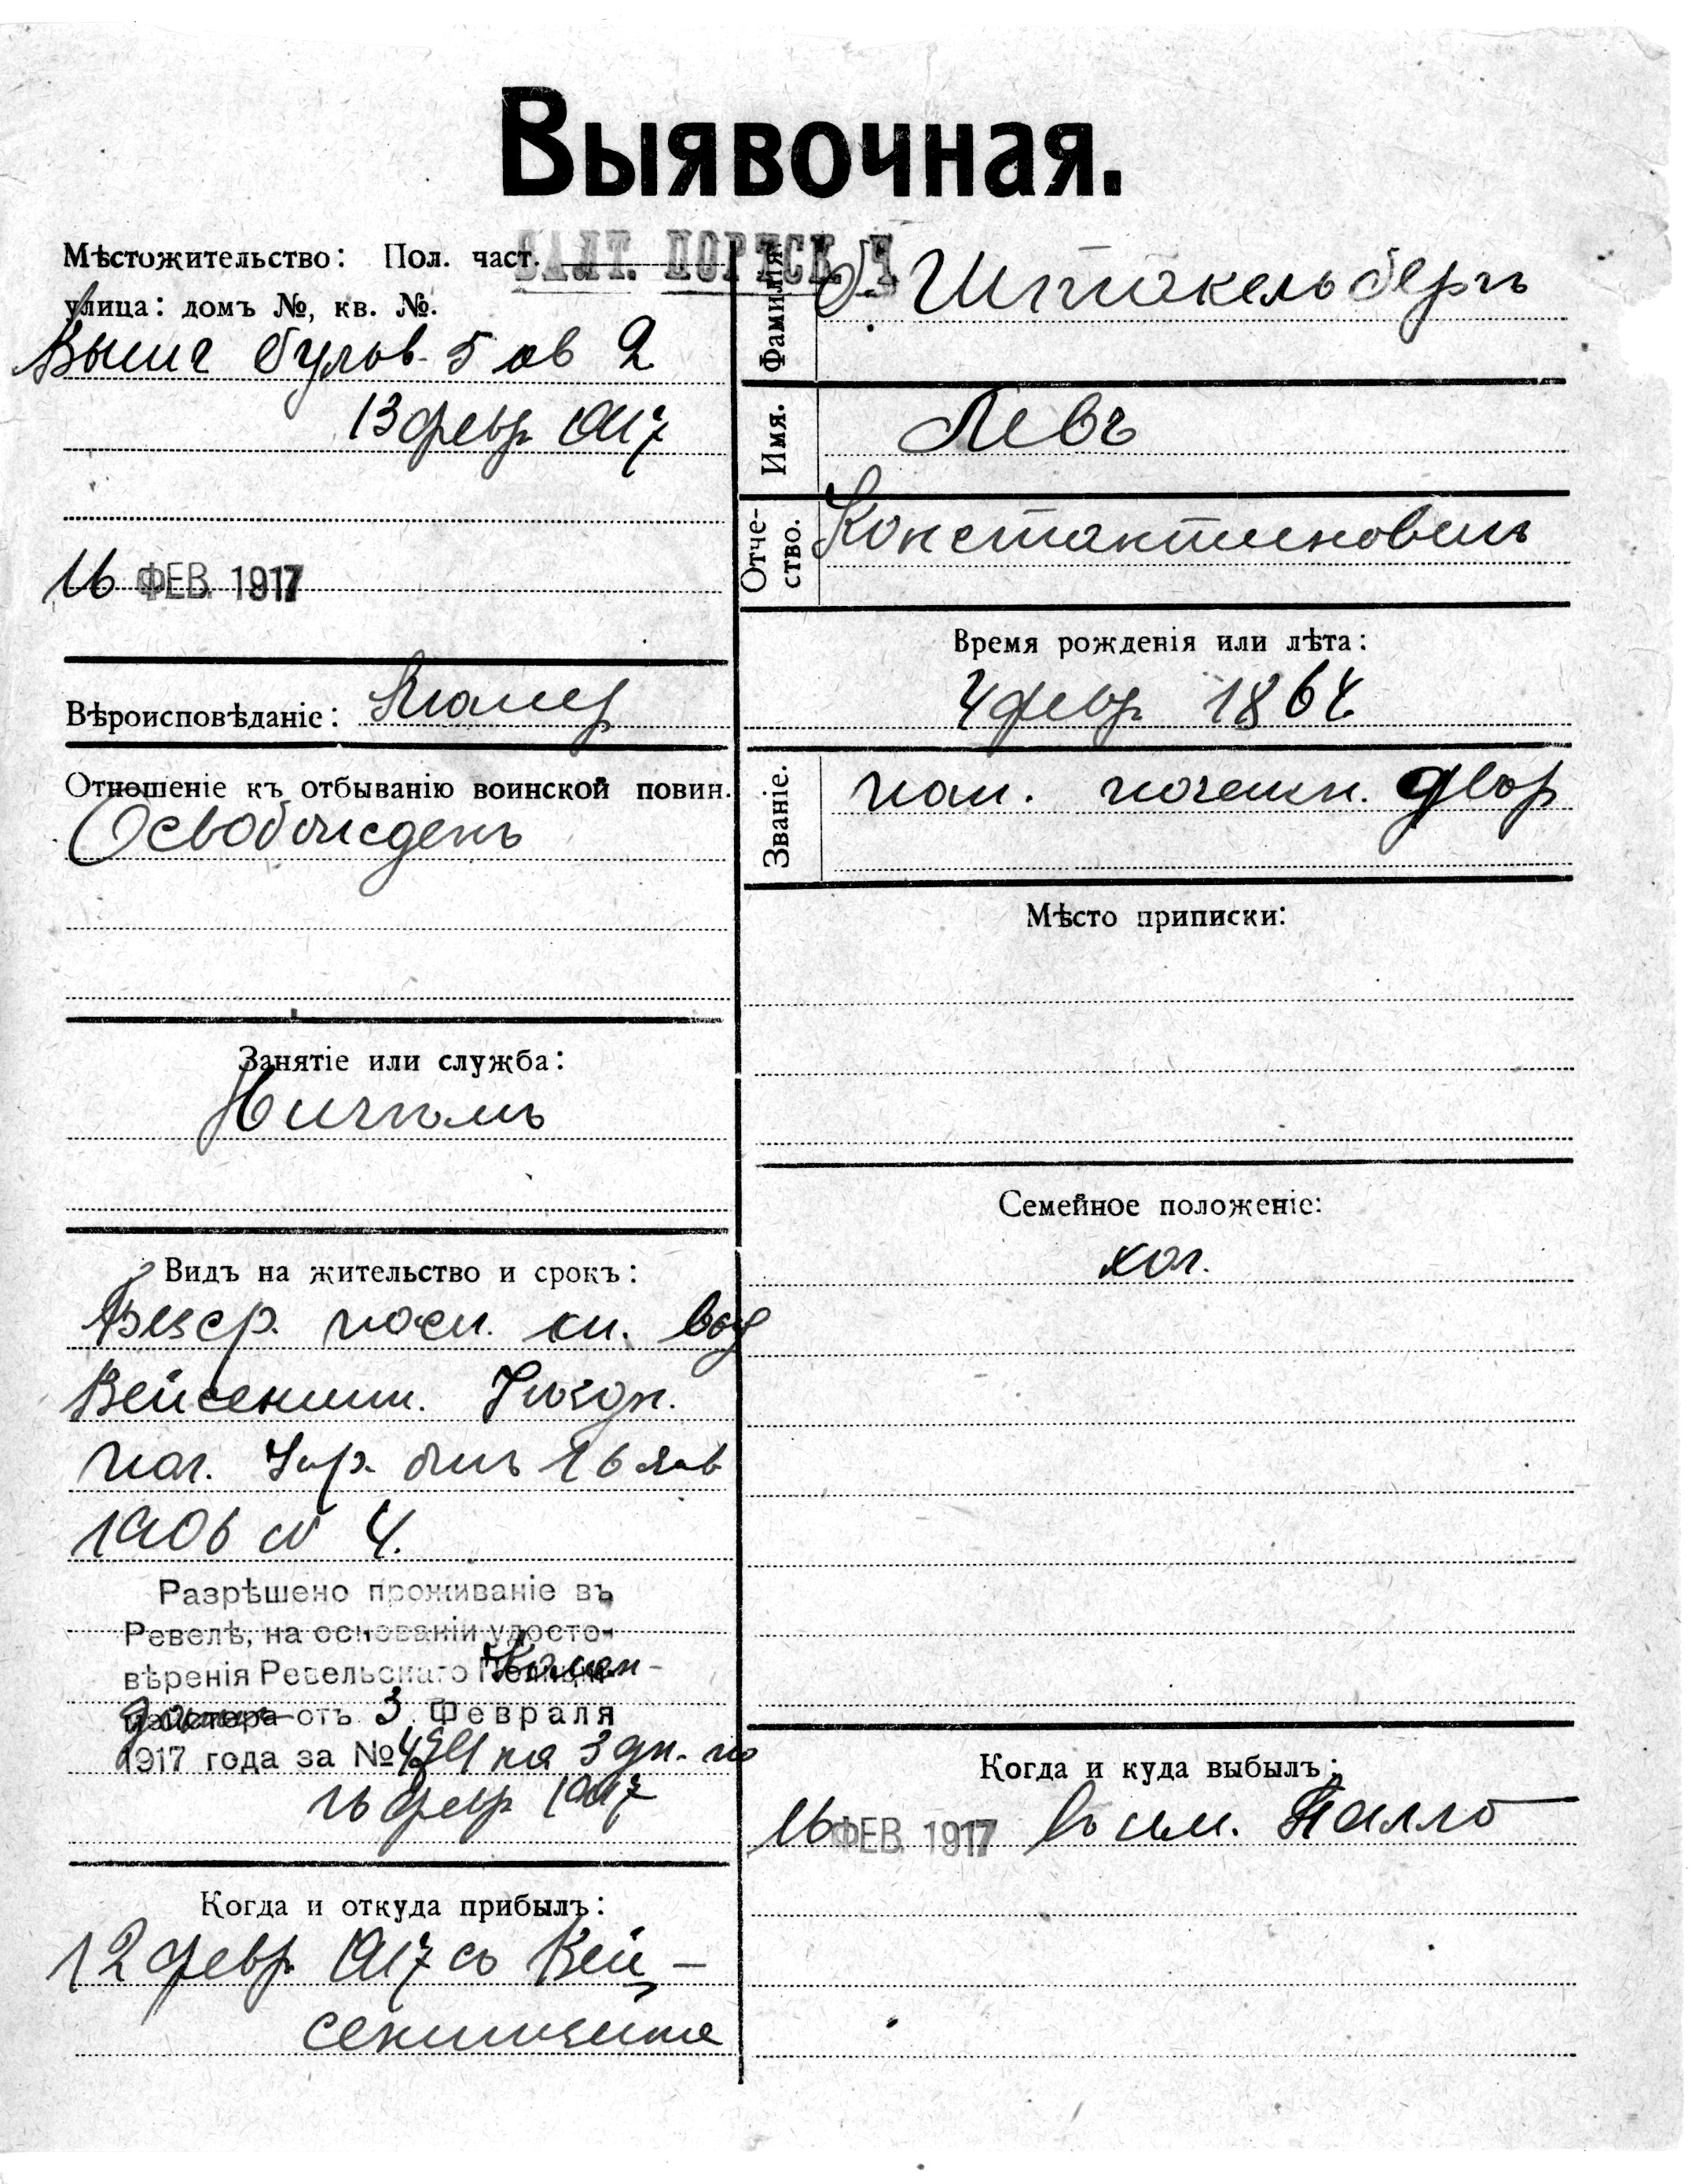 Выявочная.
Мѣстожительство: Пол. част.
БАЛТ. ПОРТСК. Ч
улица: домъ №, кв. №.
Вышг бульв. 5 кв 2
13 февр 1917
16 ФЕВ. 1917
Вѣроисповѣданіе: Лютер
Отношеніе къ отбыванію воинской повин.
Освобожденъ
Занятіе или служба:
Видъ на жительство и срокъ:
Безср. посп. кн. выд
Вейсеншт. Уѣздн.
пол. Упр. отъ 16 янв
1906 № 4.
Разрѣшено проживаніе въ
Ревелѣ, на основаніи удосто-
вѣренія Ревельскаго Комен-
данта отъ 3 Февраля
1917 года за № на 3 дн. по
16 февр 1917
Когда и откуда прибылъ:
12 февр. 1917 съ Вей-
сенштейна
Фамилія
б. Штакельбергъ
Имя.
Левъ
Отче-
ство.
Константиновичъ
Время рожденія или лѣта:
4 февр. 1864
Званіе.
пот. двор
Мѣсто приписки:
Семейное положеніе:
хол.
Когда и куда выбылъ:
16 ФЕВ. 1917 въ им. Палло